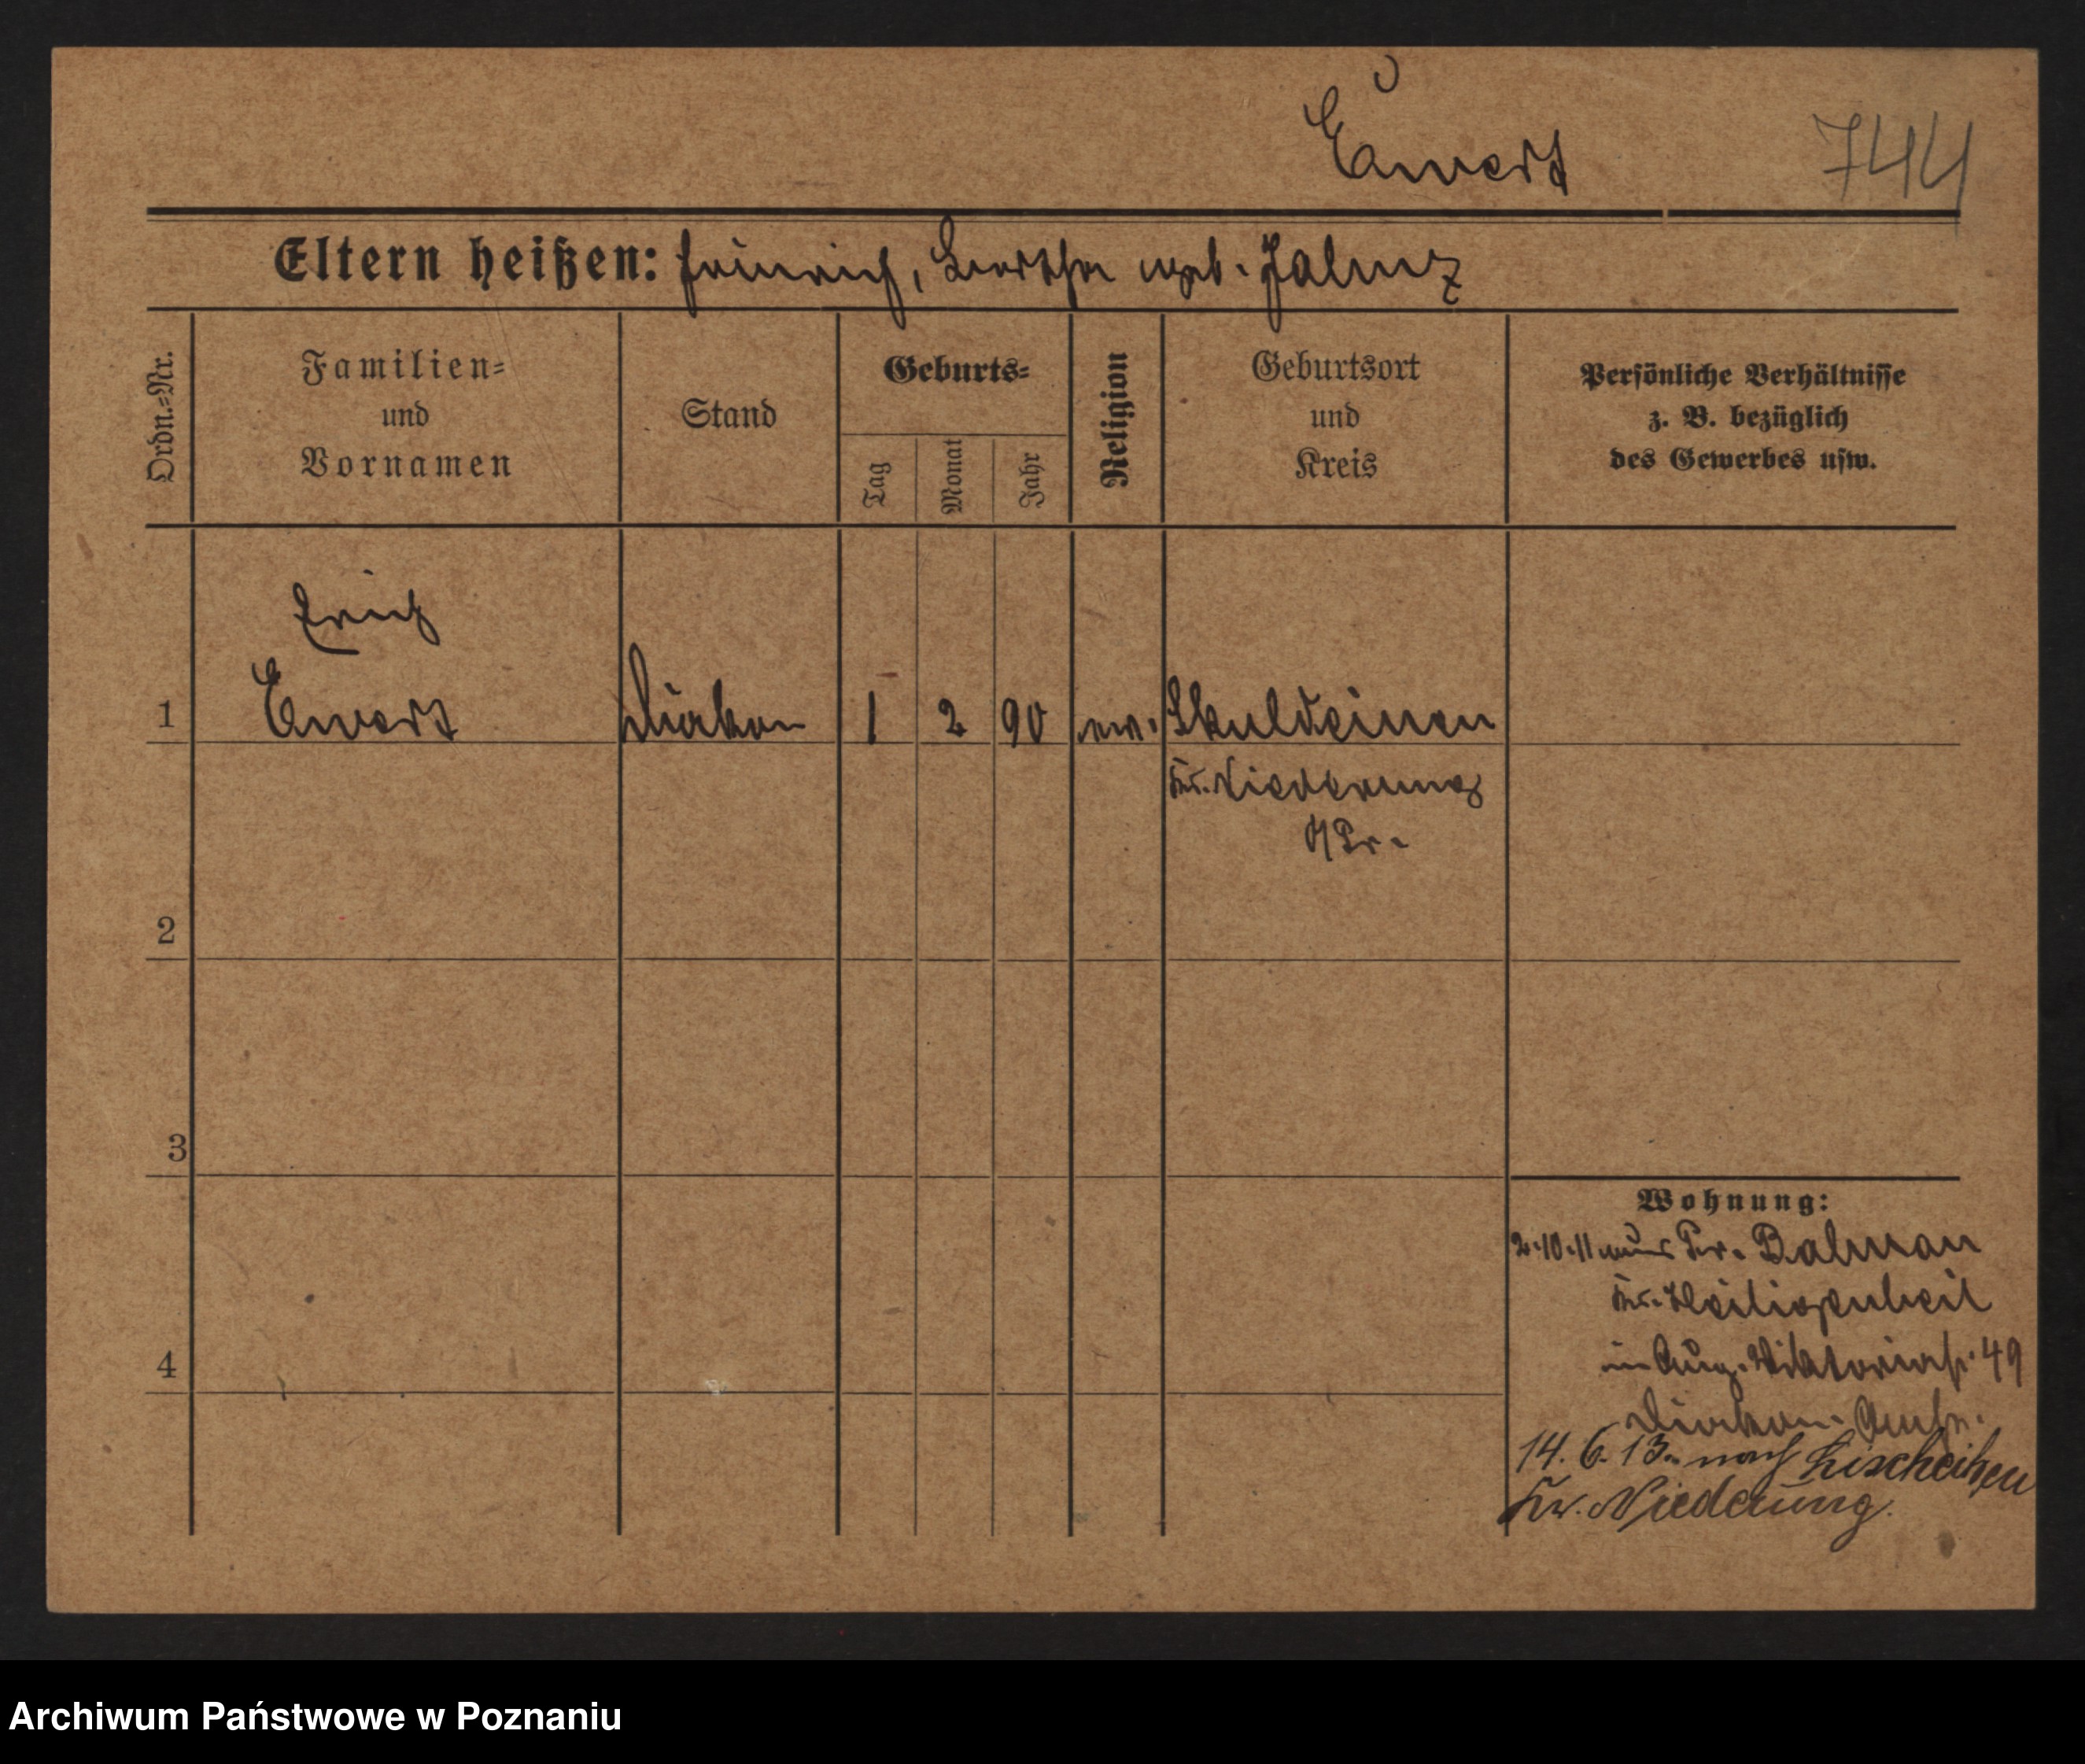 Ewert 744
Eltern heißen: Heinrich, Bertha geb.
Ordn.=Nr.
Familien=
und
Vornamen
Stand
Geburts=
Tag
Monat
Jahr
Religion
Geburtsort
und
Kreis
Persönliche Verhältnisse
z. B. bezüglich
des Gewerbes usw.
Erich
1 Ewert Diakon 1 2 90 ev. Skuldeinen
Kr. Niederung
OPr.
2
3
4
Wohnung:
2.10.11 aus Pr. Bahnau
Kr. Heiligenbeil
in Aug. Viktoriastr. 49
Diakon.
14. 6. 13. nach
Kr. Niederung.
Archiwum Państwowe w Poznaniu